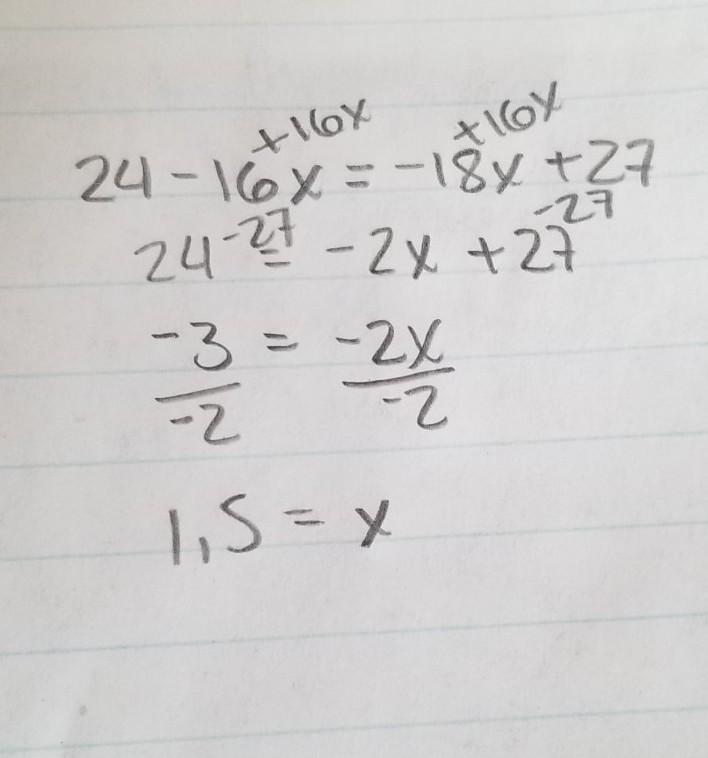 +16x +16x
24 - 16x = -18x + 27
-27 -27
24 = -2x + 27
-3 = -2x
-2 -2
1,5 = x